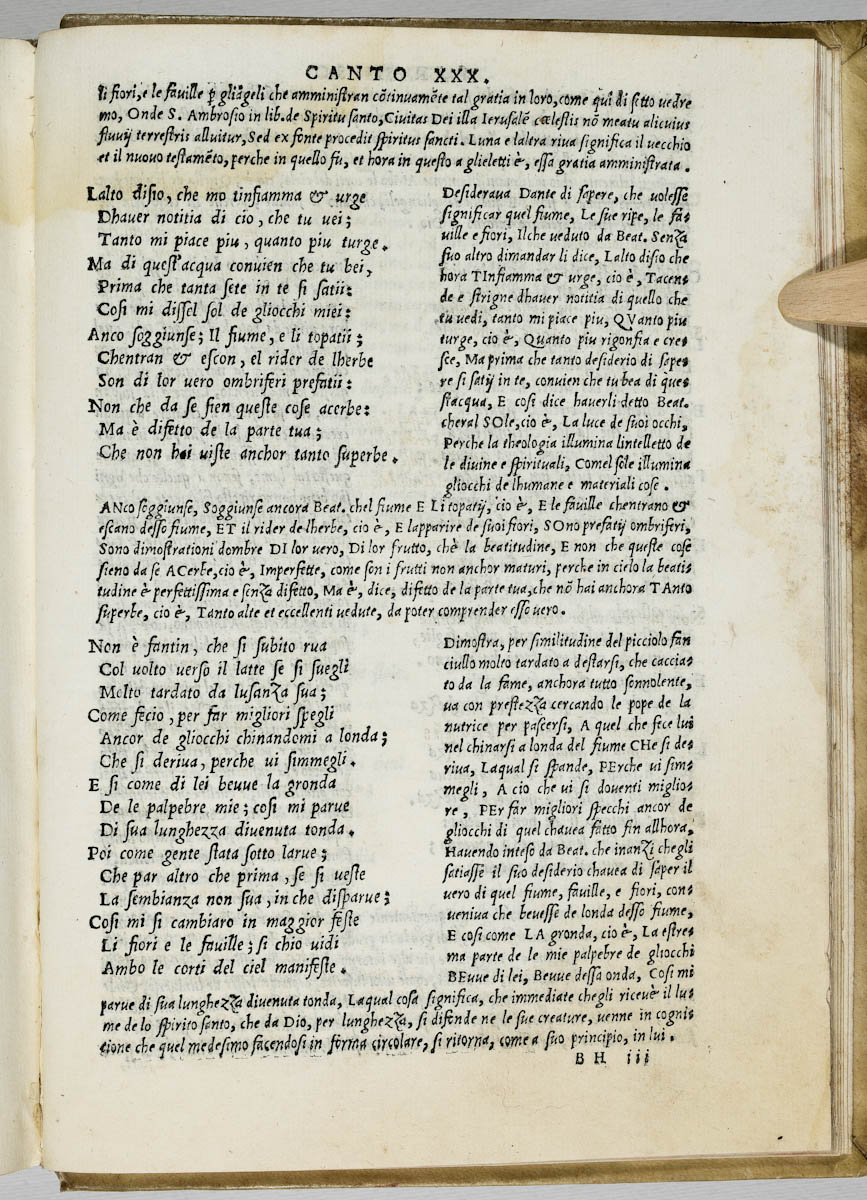 CANTO XXX.
li fiori, e le fauille ꝑ gliãgeli che amministran cõtinuamẽte tal gratia in loro, come quì di sotto uedre
mo, Onde S. Ambrosio in lib. de Spiritu santo, Ciuitas Dei illa Ierusalẽ cælestis nõ meatu alicuius
fluuij terrestris alluitur, Sed ex fonte procedit spiritus sancti. Luna e laltra riua significa il uecchio
et il nuouo testamẽto, perche in quello fu, et hora in questo a glieletti è, essa gratia amministrata.
Lalto disio, che mo tinfiamma & urge
Dhauer notitia di cio, che tu uei;
Tanto mi piace piu, quanto piu turge.
Ma di quest'acqua conuien che tu bei,
Prima che tanta sete in te si satii:
Cosi mi dissel sol de gliocchi miei:
Anco soggiunse; Il fiume, e li topatii;
Chentran & escon, el rider de lherbe
Son di lor uero ombriferi prefatii:
Non che da se sien queste cose acerbe:
Ma è difetto de la parte tua;
Che non hai uiste anchor tanto superbe.
Desideraua Dante di sapere, che uolesse
significar quel fiume, Le sue ripe, le fa-
uille e fiori, Ilche ueduto da Beat. Senza
suo altro dimandar li dice, Lalto disio che
hora TInfiamma & urge, cio è, Tacen-
de e strigne dhauer notitia di quello che
tu uedi, tanto mi piace piu, QVanto piu
turge, cio è, Quanto piu rigonfia e cre-
sce, Ma prima che tanto desiderio di sape-
re si satij in te, conuien che tu bea di ques-
stacqua, E cosi dice hauerli detto Beat.
cheral SOle, cio è, La luce de suoi occhi,
Perche la theologia illumina lintelletto de
le diuine e spirituali, Comel sole illumina
gliocchi de lhumane e materiali cose.
ANco soggiunse, Soggiunse ancora Beat. chel fiume E LI topatij, cio è, E le fauille chentrano &
escano desso fiume, ET il rider de lherbe, cio è, E lapparire de suoi fiori, SOno prefatij ombriferi,
Sono dimostrationi dombre DI lor uero, Di lor frutto, chè la beatitudine, E non che queste cose
sieno da se ACerbe, cio è, Imperfette, come son i frutti non anchor maturi, perche in cielo la beati-
tudine è perfettissima e senza difetto, Ma è, dice, difetto de la parte tua, che nõ hai anchora TAnto
superbe, cio è, Tanto alte et eccellenti uedute, da poter comprender esso uero.
Non è fantin, che si subito rua
Col uolto uerso il latte se si suegli
Molto tardato da lusanza sua;
Come fecio, per far migliori spegli
Ancor de gliocchi chinandomi a londa;
Che si deriua, perche ui simmegli.
E si come di lei beuue la gronda
De le palpebre mie; cosi mi parue
Di sua lunghezza diuenuta tonda.
Poi come gente stata sotto larue;
Che par altro che prima, se si ueste
La sembianza non sua, in che disparue;
Cosi mi si cambiaro in maggior feste
Li fiori e le fauille; si chio uidi
Ambo le corti del ciel manifeste.
Dimostra, per similitudine del picciolo fan
ciullo molto tardato a destarsi, che caccia-
to da la fame, anchora tutto sonnolente,
ua con prestezza cercando le pope de la
nutrice per pascersi, A quel che fece lui
nel chinarsi a londa del fiume CHe si de-
riua, Laqual si spande, PErche ui sim-
megli, A cio che ui si douenti miglio-
re, PEr far migliori specchi ancor de
gliocchi di quel chauea fatto fin allhora,
Hauendo inteso da Beat. che inanzi chegli
satiasse il suo desiderio chauea di saper il
uero di quel fiume, fauille, e fiori, con-
ueniua che beuesse de londa desso fiume,
E cosi come LA gronda, cio è, La estre-
ma parte de le mie palpebre de gliocchi
BEuue di lei, Beuue dessa onda, Cosi mi
parue di sua lunghezza diuenuta tonda, Laqual cosa significa, che immediate chegli riceuè il lu-
me de lo spirito santo, che da Dio, per lunghezza, si difende ne le sue creature, uenne in cogni-
tione che quel medesimo facendosi in forma circolare, si ritorna, come a suo principio, in lui.
BH iii